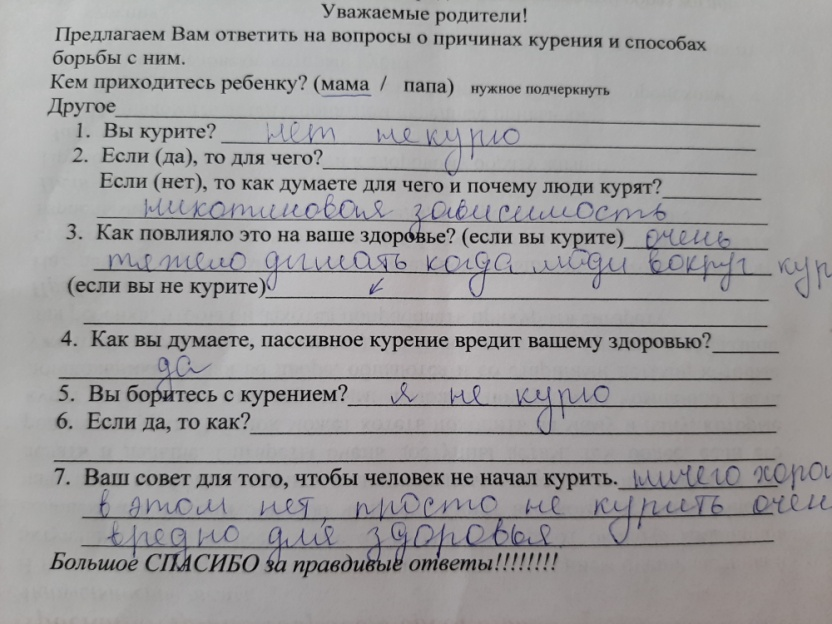 Уважаемые родители!
Предлагаем Вам ответить на вопросы о причинах курения и способах
борьбы с ним.
Кем приходитесь ребенку? (мама / папа) нужное подчеркнуть
Другое
1. Вы курите? нет не курю
2. Если (да), то для чего?
Если (нет), то как думаете для чего и почему люди курят?
никотиновая зависимость
3. Как повлияло это на ваше здоровье? (если вы курите) очень
тяжело дышать когда люди вокруг кур
(если вы не курите)
4. Как вы думаете, пассивное курение вредит вашему здоровью?
да
5. Вы боритесь с курением? я не курю
6. Если да, то как?
7. Ваш совет для того, чтобы человек не начал курить. ничего хоро
в этом нет, просто не курить очен
вредно для здоровья
Большое СПАСИБО за правдивые ответы!!!!!!!!